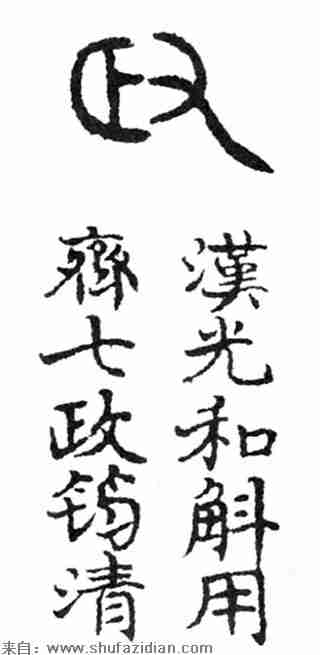 政
漢光和斛用
齊七政筠清
来自：www.shufazidian.com